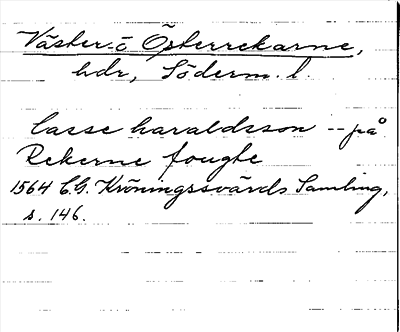 Väster- o Österrekarne,
hdr, Söderm. l.
lasse haraldsson -- på
Rekerne fougte
1564 C.G. Kröningssvärds Samling,
s. 146.